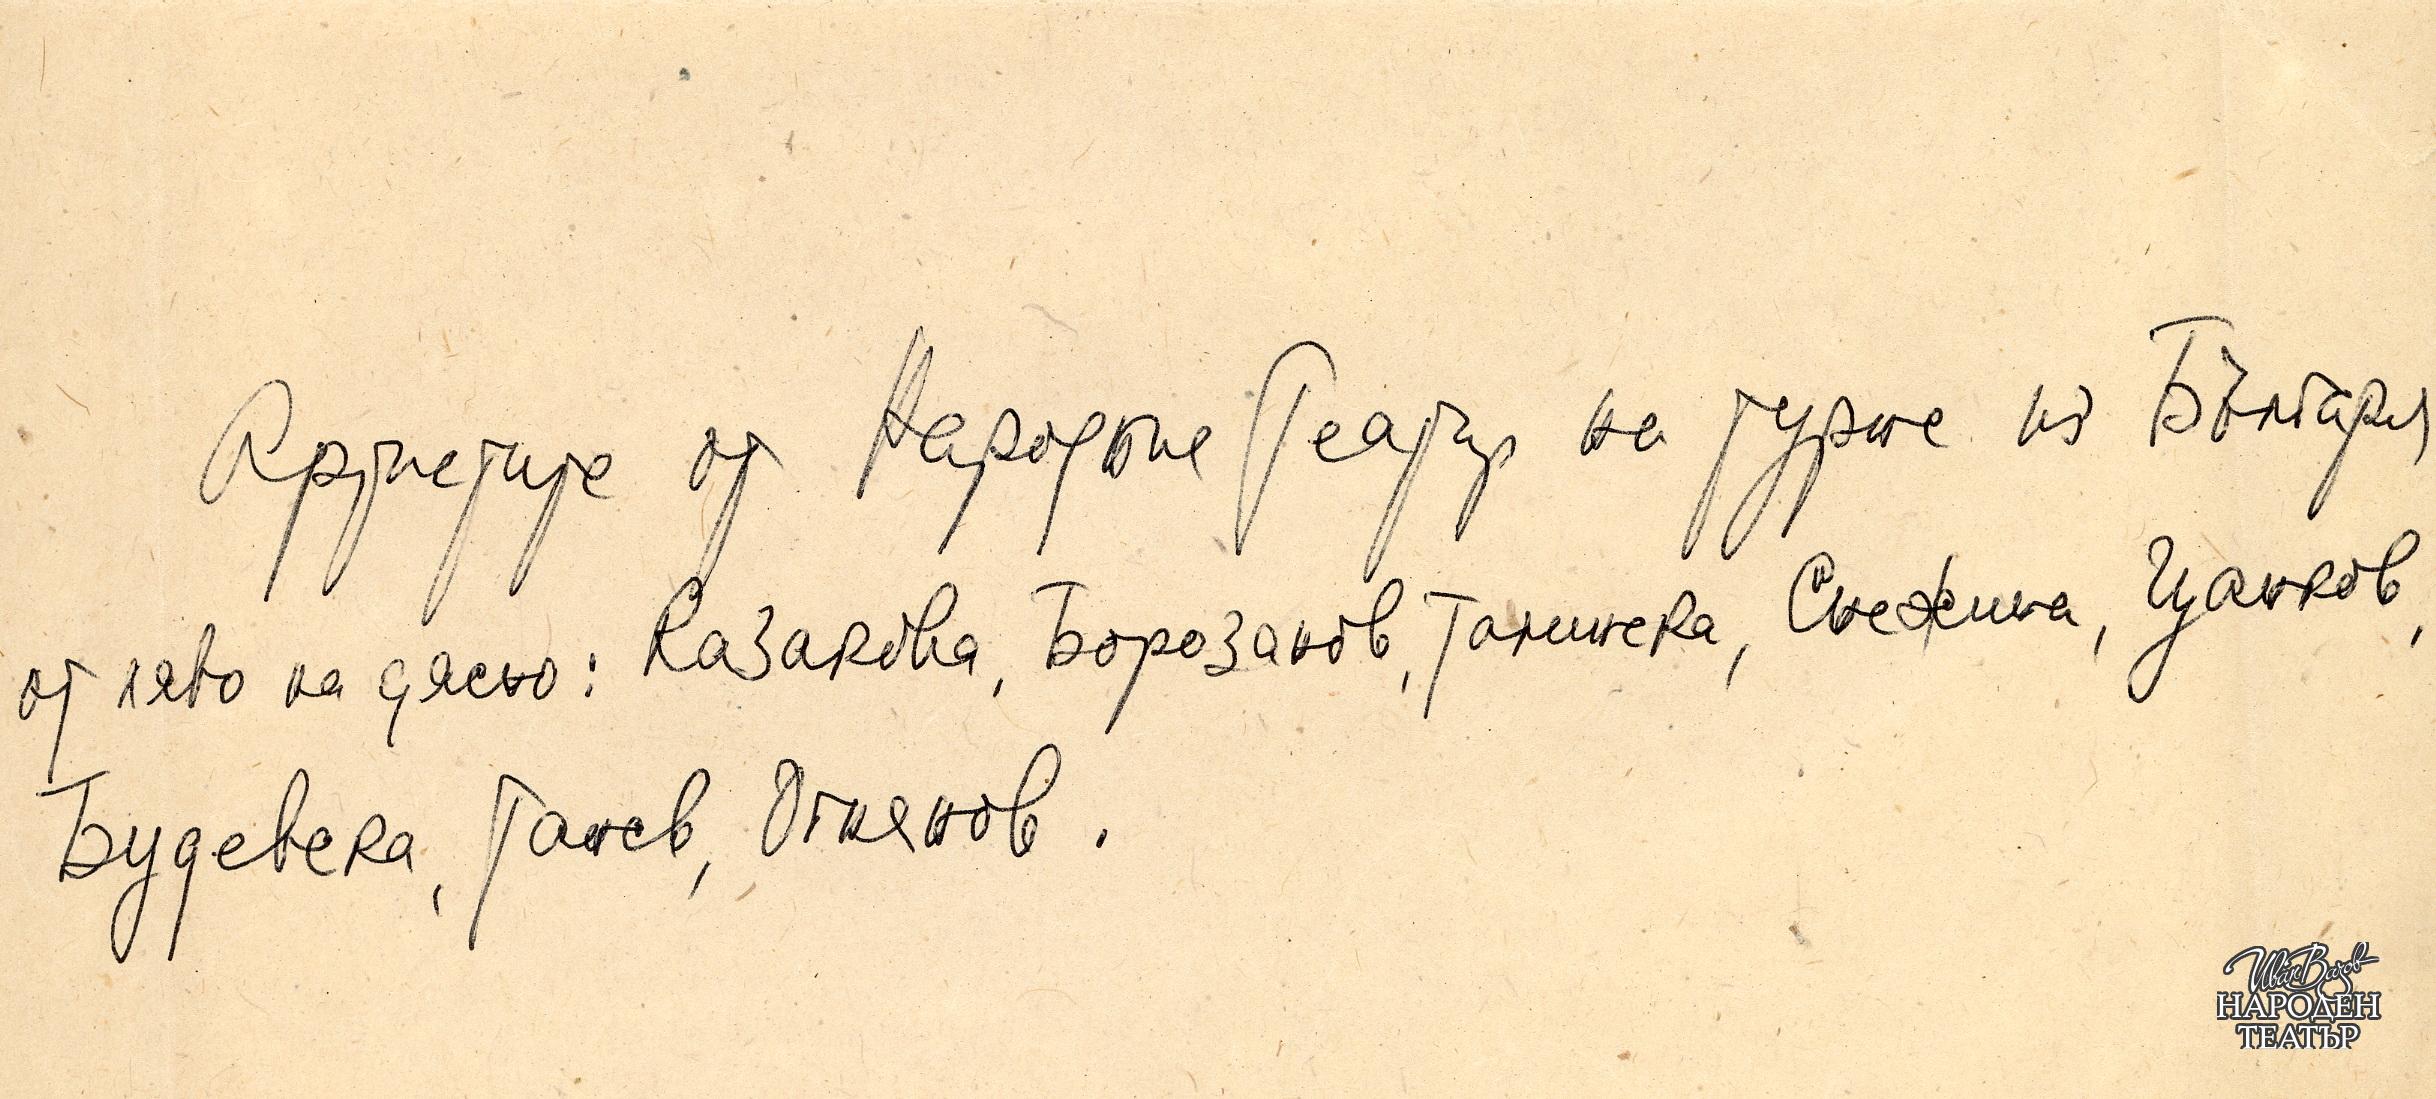 Артистите от Народние Театър на турне из България
от ляво на дясно: Казакова, Борозанов, Танинска, Снежина, Цанков,
Будевска, Танев, Огнянов.
Иван Вазов
НАРОДЕН
ТЕАТЪР